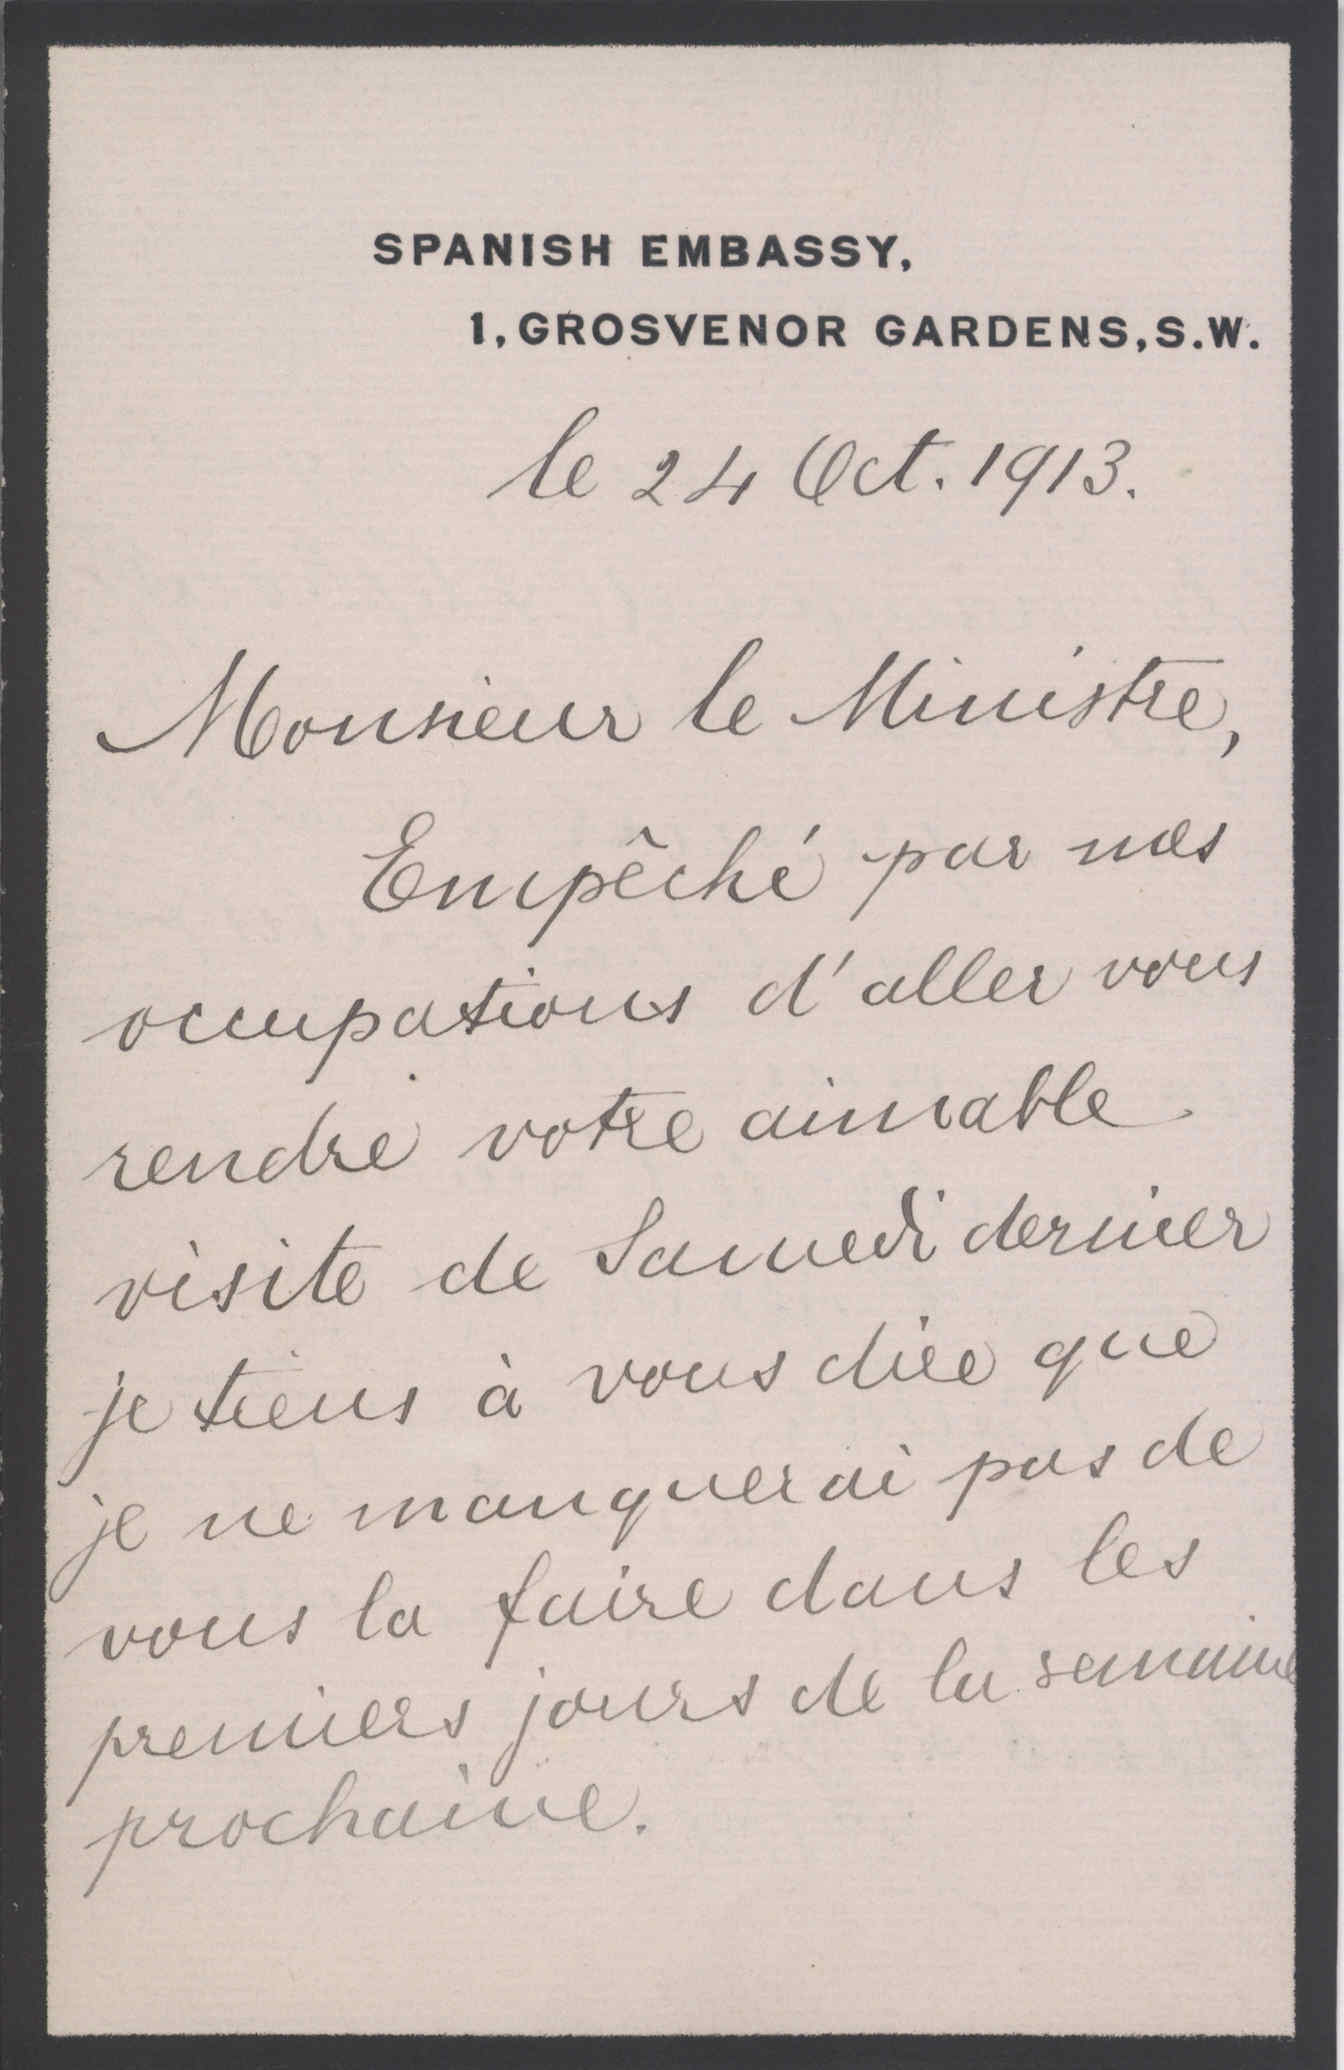 SPANISH EMBASSY,
1, GROSVENOR GARDENS, S.W.
le 24 Oct. 1913.
Monsieur le Ministre,
Empêché par mes
occupations d'aller vous
rendre votre aimable
visite de Samedi dernier
je tiens à vous dire que
je ne manquerai pas de
vous la faire dans les
premiers jours de la semaine
prochaine.